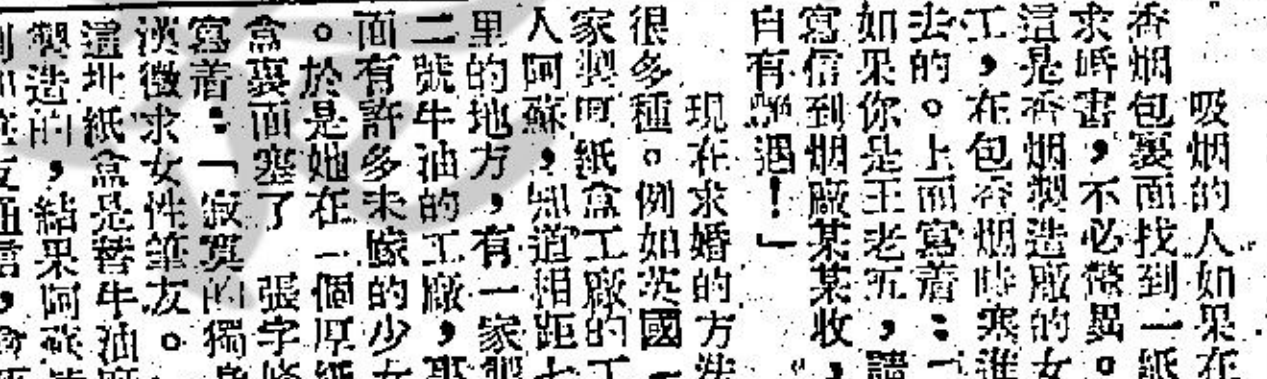 吸烟的人如果在
香烟包裏面找到一紙
求婚書,不必驚異。
這是香烟製造廠的女
工,在包香烟時塞進
去的。上面寫着:「
如果你是王老五,請
寫信到烟廠某某收,
自有艷遇!」
現在求婚的方法
很多種。例如英國一
家製厚紙盒工廠的工
人阿蘇,知道相距七
里的地方,有一家
二號牛油的工廠,裏
面有許多未嫁的少女
。於是她在一個厚紙
盒裏面塞了一張字條
寫着:「寂寞的獨身
漢徵求女性筆友。
這批紙盒是替牛油廠
製造的,結果阿蘇